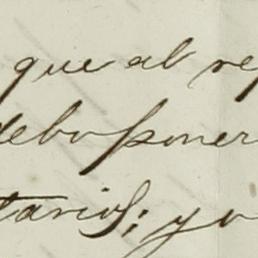 que al re
debo poner
tarios; yo